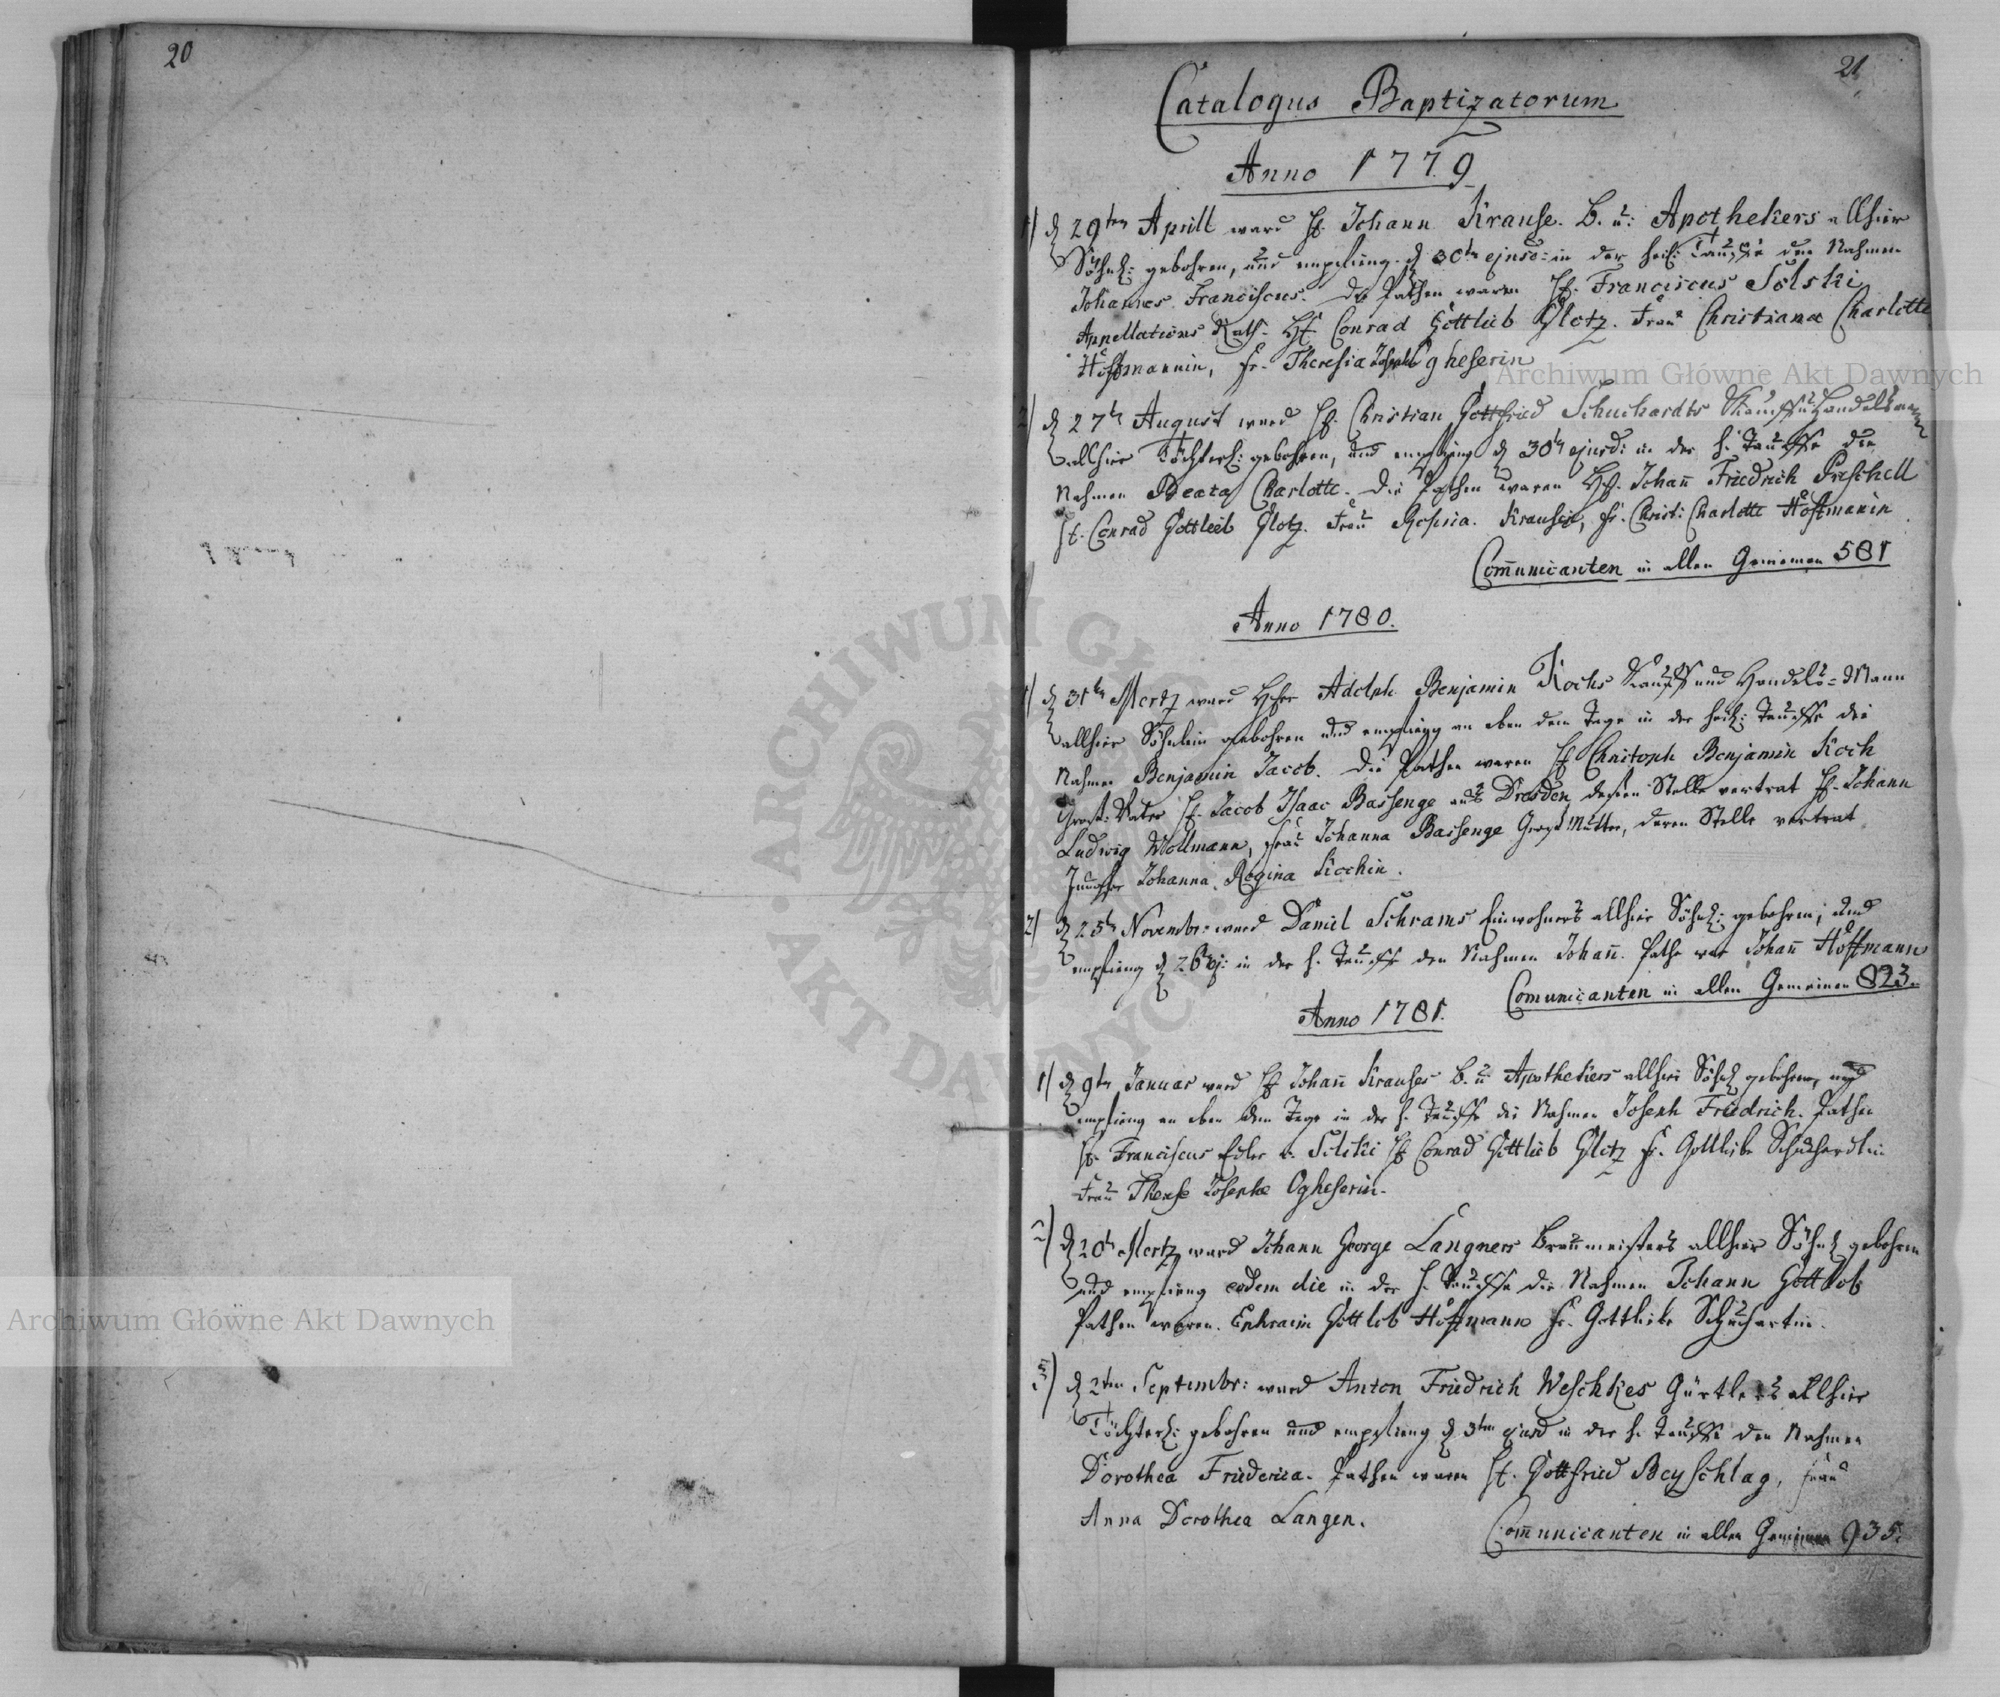 20
21
Catalogus Baptizatorum
Anno 1779
1) d 29ten Aprill ward H. Johann Krause. B. u: Apothekers allhier
Söhnl: gebohren, und empfieng d 30ten ejusd: in der heil: Tauffe den Nahmen
Johannes Franciscus. Die Pathen waren H. Franciscus Solski
Appellations Rath. H. Conrad Gottlieb Glotz. Frau Christiana Charlotte
Hoffmannin, Fr. Theresia Josepha Ogheserin
2) d 27t August ward H. Christian Gottfried Schuchardts Kauff u Handelsmann
allhier Töchterl: gebohren, und empfieng d 30t ejusd: in der h. Tauffe die
Nahmen Beata Charlotte. Die Pathen waren H. Johañ Friedrich Preschell
H. Conrad Gottlieb Glotz. Frau Rosina Krausin, Fr. Christ: Charlotte Hoffmanin
Com̃unicanten in allen Gemeinen 581
Anno 1780.
1) d 31ten Mertz ward Herr Adolph Benjamin Kochs Kauff und Handels-Mann
allhier Söhnlein gebohren und empfieng an eben dem Tage in der heil: Tauffe die
Nahmen Benjamin Jacob. Die Pathen waren H Christoph Benjamin Koch
Groß-Vater H. Jacob Isaac Bassenge aus Dresden, deßen Stelle vertrat H. Johann
Ludwig Wollmann, Frau Johanna Bassenge Groß Mutter, deren Stelle vertrat
Jungfer Johanna Regina Kochin.
2) d 25t Novembr: ward Daniel Schrams Einwohners allhier Söhnl: gebohren, und
empfieng d 26t ej: in der h. Tauffe den Nahmen Johañ. Pathe war Johañ Hoffmann
Comunicanten in allen Gemeinen 823.
Anno 1781.
1) d 9ten Januar ward H Johañ Krauses B. u Apothekers allhier Söhnl gebohren, und
empfieng an eben dem Tage in der h. Tauffe die Nahmen Joseph Friedrich. Pathen
H. Franciscus Edler v. Solski H Conrad Gottlieb Glotz Fr. Gottliebe Schuchardtin
Frau Therese Josepha Ogheserin.
2) d 20t Mertz ward Johann George Langners Braumeisters allhier Söhnl gebohren
und empfieng eodem die in der h. Tauffe die Nahmen Johann Gottlob
Pathen waren. Ephraim Gottlob Hoffmann Fr. Gottliebe Schuchartin.
3) d 2ten Septembr: ward Anton Friedrich Weschkes Gürtlers allhier
Töchterl: gebohren und empfieng d 3ten ejusd in der h. Tauffe den Nahmen
Dorothea Friederica. Pathen waren H. Gottfried Beyschlag, Frau
Anna Dorothea Langen.
Com̃unicanten in allen Gemeinen 935.
Archiwum Główne Akt Dawnych
Archiwum Główne Akt Dawnych